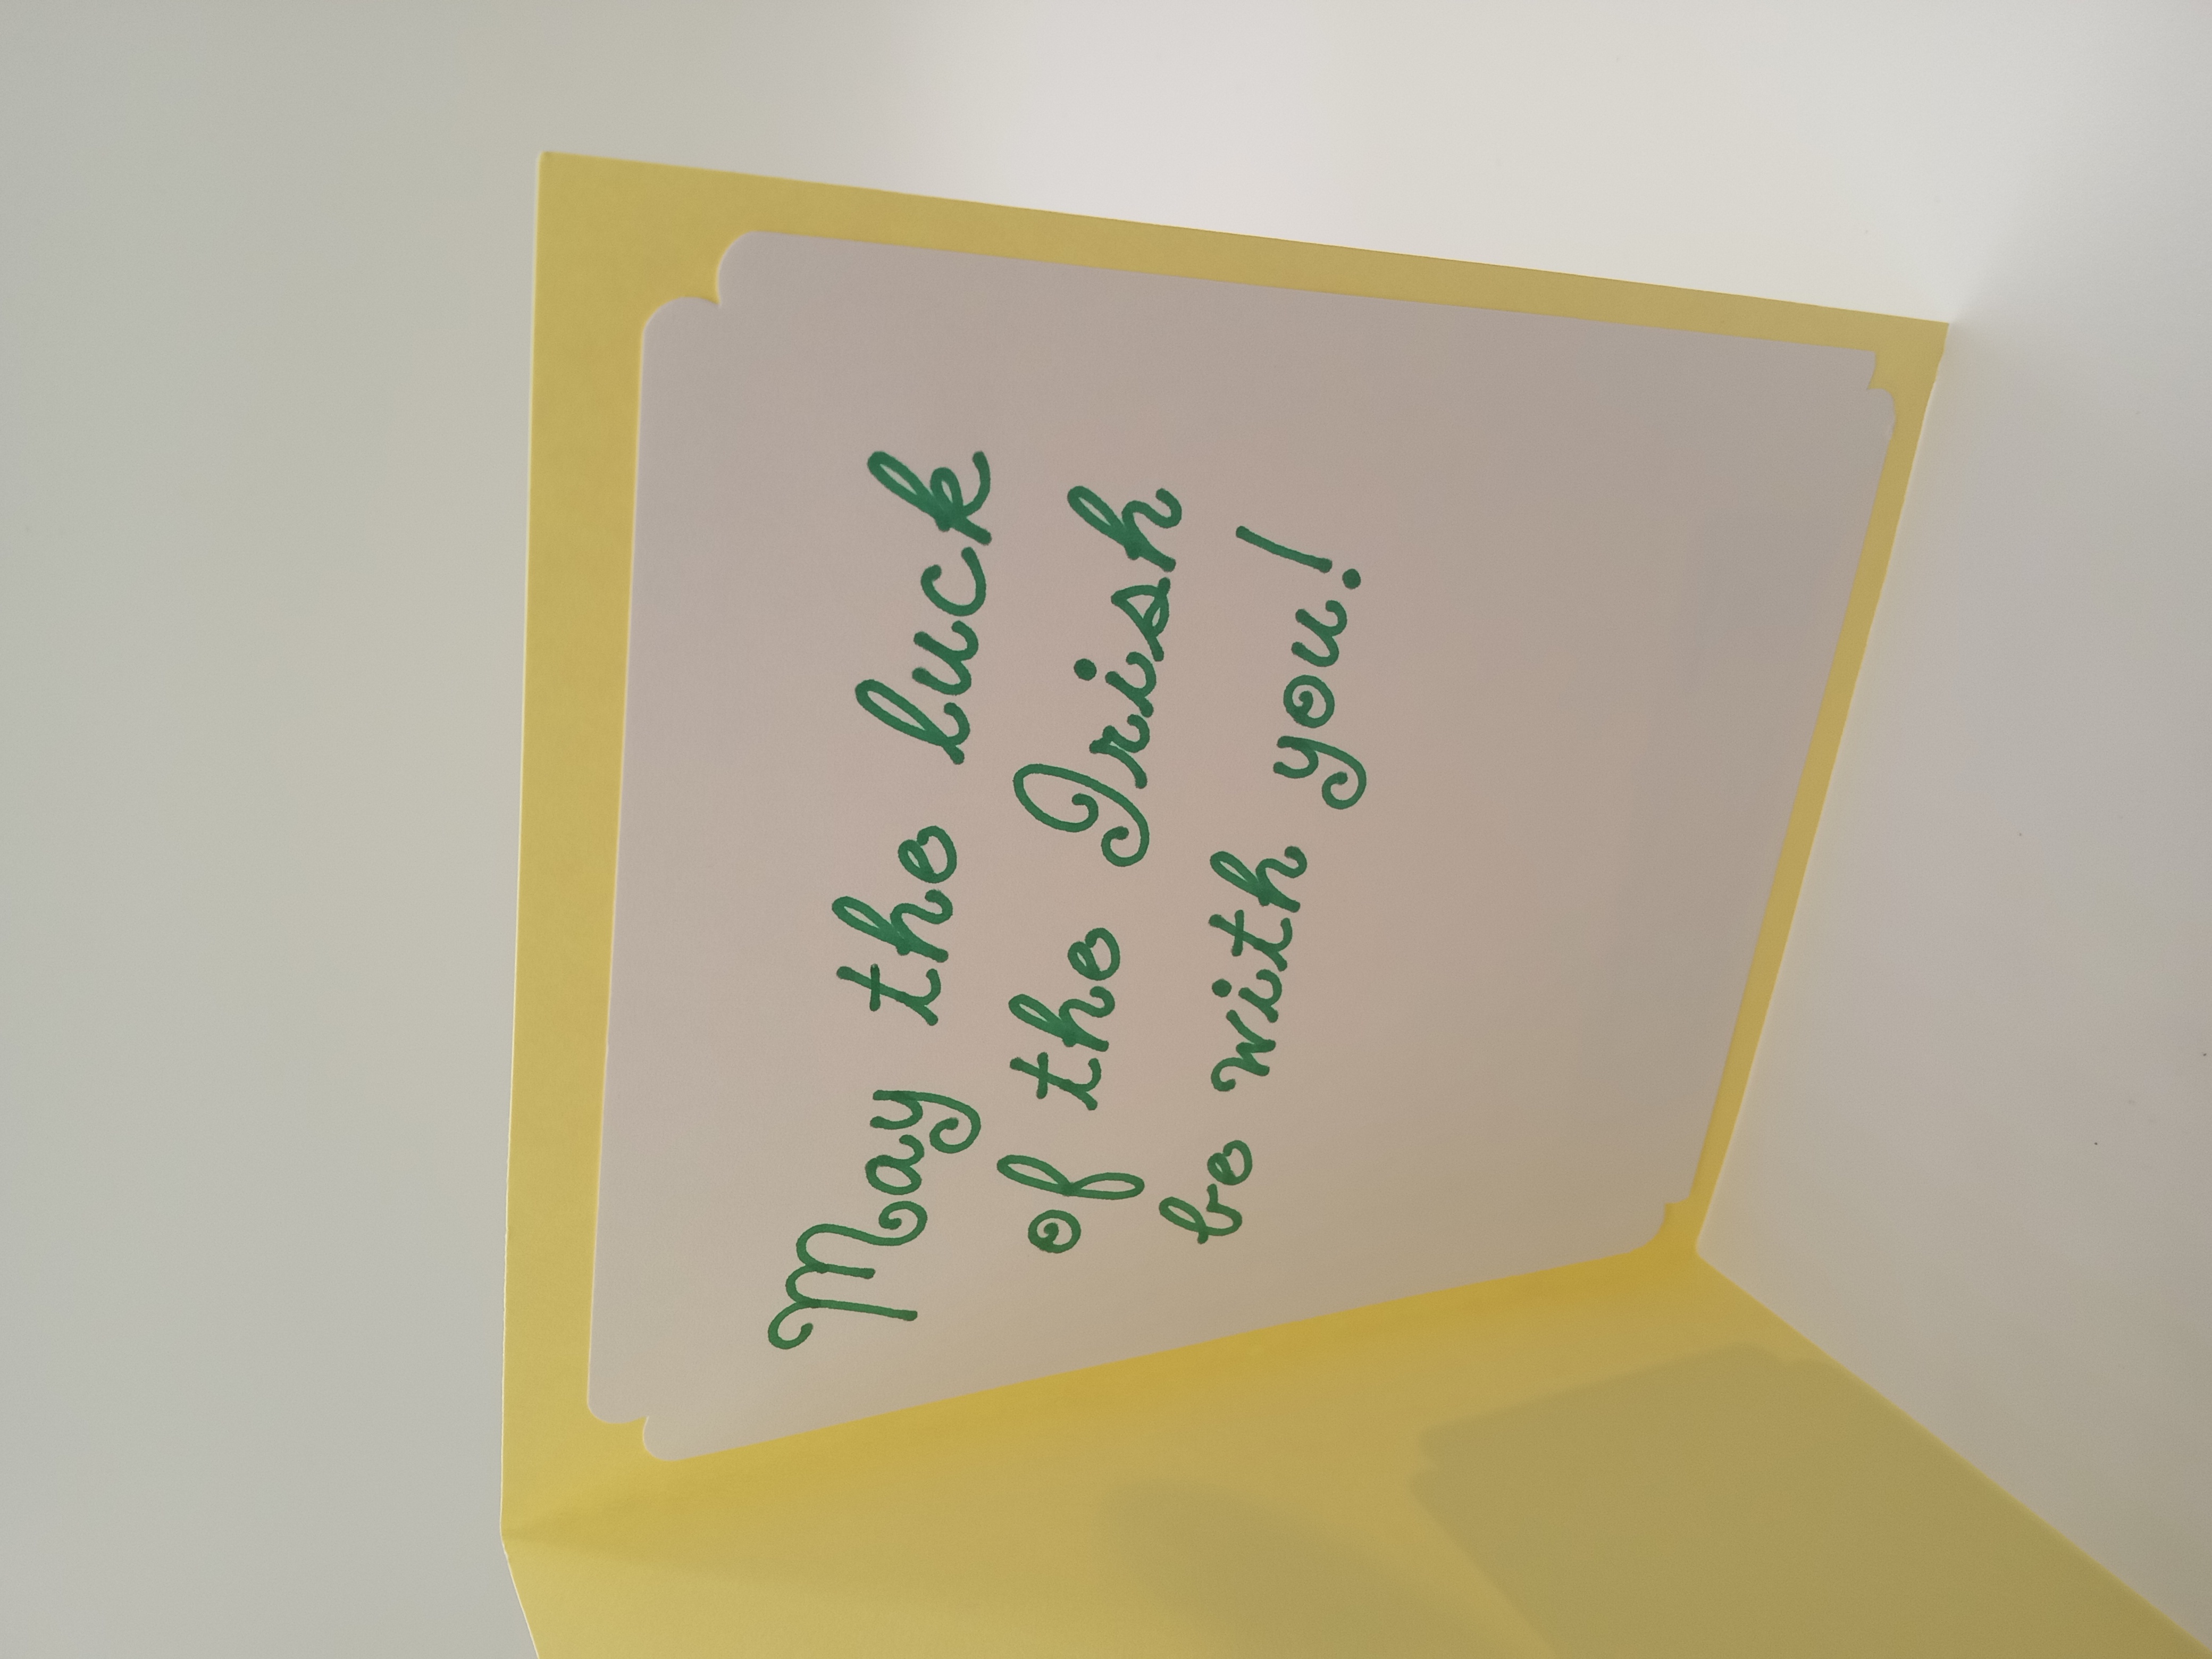 May the luck
of the Irish
be with you!